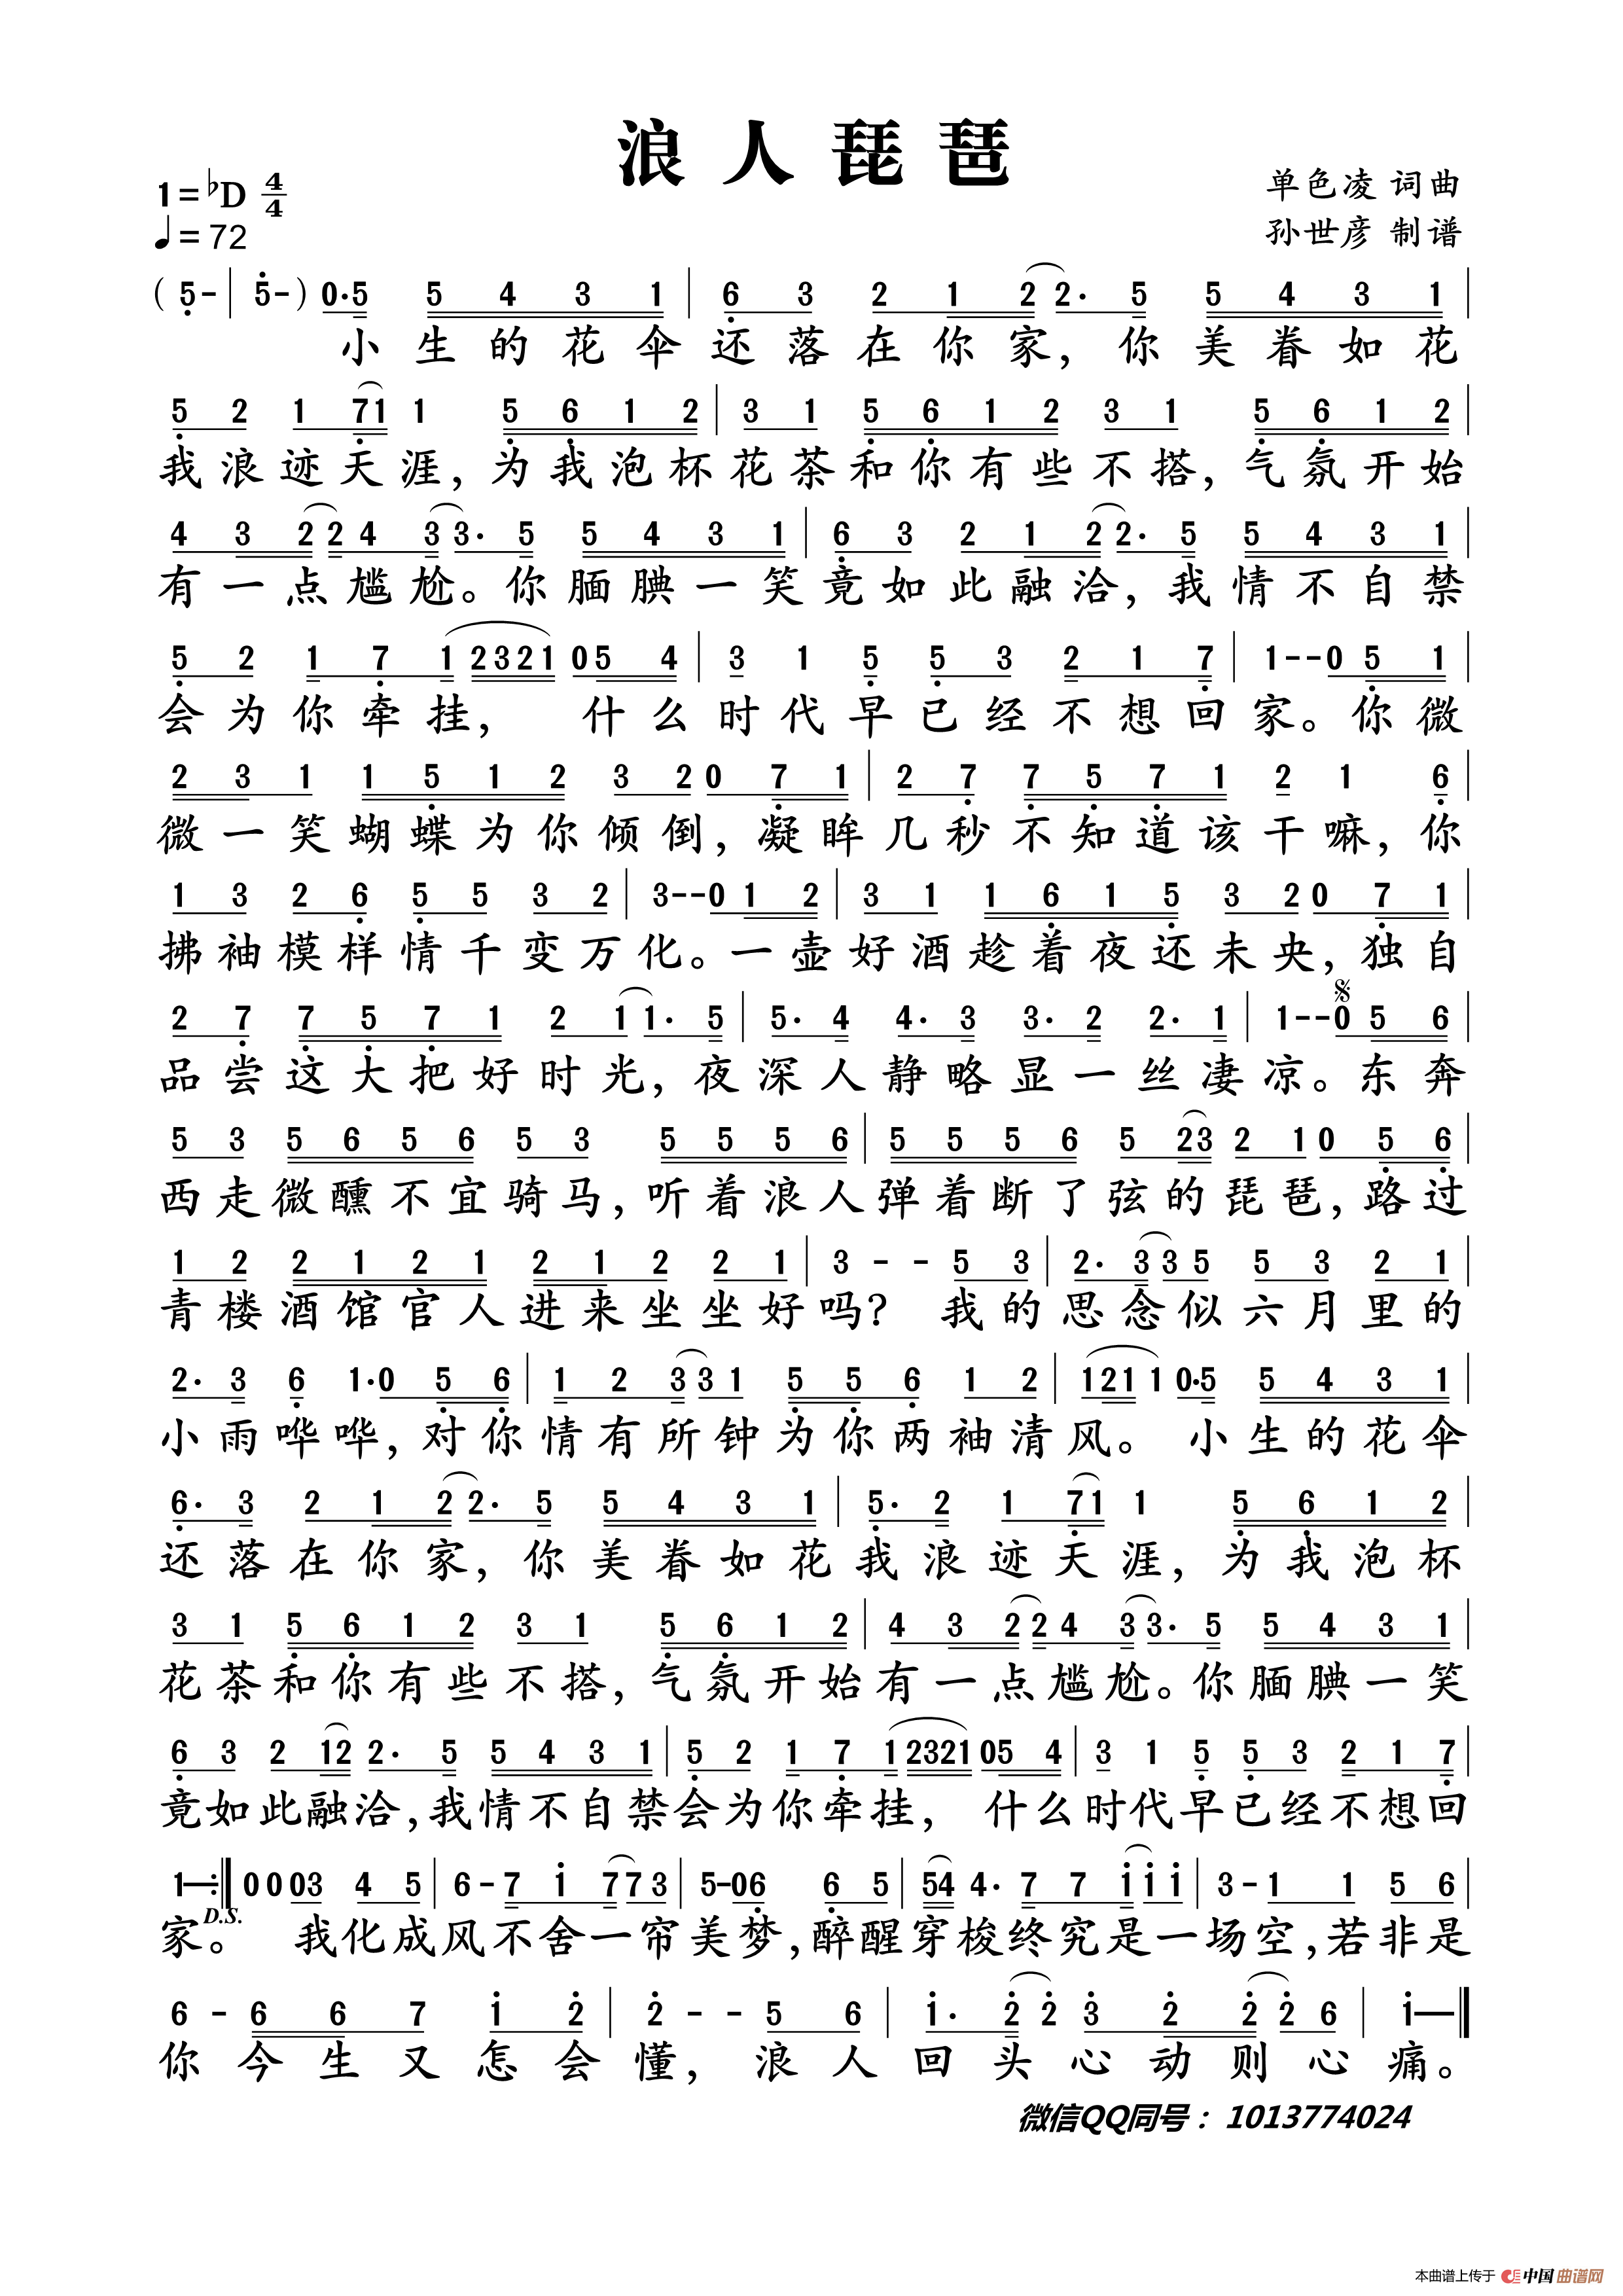 浪人琵琶
1=♭D 4/4
♩=72
单色凌 词曲
孙世彦 制谱
(5-|5-) 0·5 5 4 3 1 | 6 3 2 1 2 2· 5 5 4 3 1 |
小生的花伞还落在你家，你美眷如花
5 2 1 7 1 1 5 6 1 2 | 3 1 5 6 1 2 3 1 5 6 1 2 |
我浪迹天涯，为我泡杯花茶和你有些不搭，气氛开始
4 3 2 2 4 3 3· 5 5 4 3 1 | 6 3 2 1 2 2· 5 5 4 3 1 |
有一点尴尬。你腼腆一笑竟如此融洽，我情不自禁
5 2 1 7 1 2 3 2 1 0 5 4 | 3 1 5 5 3 2 1 7 | 1 - - 0 5 1 |
会为你牵挂，什么时代早已经不想回家。你微
2 3 1 1 5 1 2 3 2 0 7 1 | 2 7 7 5 7 1 2 1 6 |
微一笑蝴蝶为你倾倒，凝眸几秒不知道该干嘛，你
1 3 2 6 5 5 3 2 | 3 - - 0 1 2 | 3 1 1 6 1 5 3 2 0 7 1 |
拂袖模样情千变万化。一壶好酒趁着夜还未央，独自
2 7 7 5 7 1 2 1 1· 5 | 5· 4 4· 3 3· 2 2· 1 | 1 - - 0 5 6 |
品尝这大把好时光，夜深人静略显一丝凄凉。东奔
5 3 5 6 5 6 5 3 5 5 5 6 | 5 5 5 6 5 2 3 2 1 0 5 6 |
西走微醺不宜骑马，听着浪人弹着断了弦的琵琶，路过
1 2 2 1 2 1 2 1 2 2 1 | 3 - - 5 3 | 2· 3 3 5 5 3 2 1 |
青楼酒馆官人进来坐坐好吗？我的思念似六月里的
2· 3 6 1· 0 5 6 | 1 2 3 3 1 5 5 6 1 2 | 1 2 1 1 0·5 5 4 3 1 |
小雨哗哗，对你情有所钟为你两袖清风。小生的花伞
6· 3 2 1 2 2· 5 5 4 3 1 | 5· 2 1 7 1 1 5 6 1 2 |
还落在你家，你美眷如花我浪迹天涯，为我泡杯
3 1 5 6 1 2 3 1 5 6 1 2 | 4 3 2 2 4 3 3· 5 5 4 3 1 |
花茶和你有些不搭，气氛开始有一点尴尬。你腼腆一笑
6 3 2 1 2 2· 5 5 4 3 1 | 5 2 1 7 1 2 3 2 1 0 5 4 | 3 1 5 5 3 2 1 7 |
竟如此融洽，我情不自禁会为你牵挂，什么时代早已经不想回
1—:‖ 0 0 0 3 4 5 | 6 - 7 1 7 7 3 | 5 - 0 6 6 5 | 5 4 4· 7 7 1 1 1 | 3 - 1 1 5 6 |
D.S.
家。我化成风不舍一帘美梦，醉醒穿梭终究是一场空，若非是
6 - 6 6 7 1 2 | 2 - - 5 6 | 1· 2 2 3 2 2 2 6 | 1—‖
你今生又怎会懂，浪人回头心动则心痛。
微信QQ同号：1013774024
本曲谱上传于 中国曲谱网